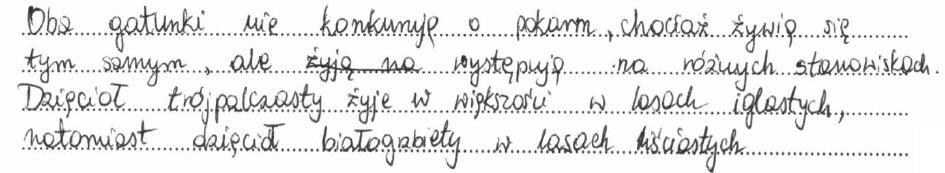 Oba gatunki nie konkurują o pokarm, chociaż żywią się
tym samym, ale żyją na występują na różnych stanowiskach.
Dzięcioł trójpalczasty żyje w większości w lasach iglastych,
natomiast dzięcioł białogrzbiety w lasach liściastych